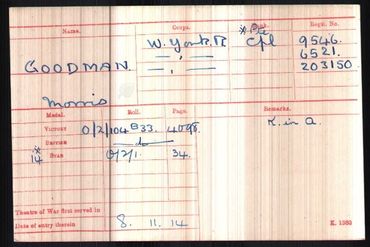 Name. Corps. Rank. Regtl. No.
GOODMAN W. York. R * Pte 9546.
— " — Cpl 6521.
— " — 203150.
Morris
Medal. Roll. Page. Remarks.
VICTORY O/2/104 B33. 4098. K. in A.
BRITISH — " —
* 14 STAR O/2/1. 34.
Theatre of War first served in
Date of entry therein 8. 11. 14 K. 1380